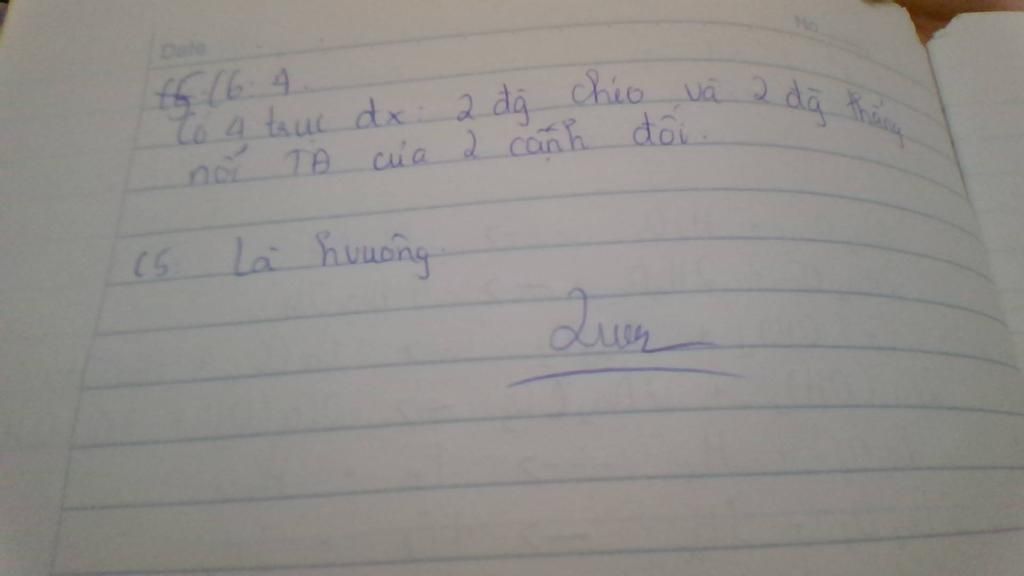 Date
No
C6: 4.
Có 4 trục đx: 2 đg chéo và 2 đg thẳng
nối TĐ của 2 cạnh đối.
C5: Là hvuông.